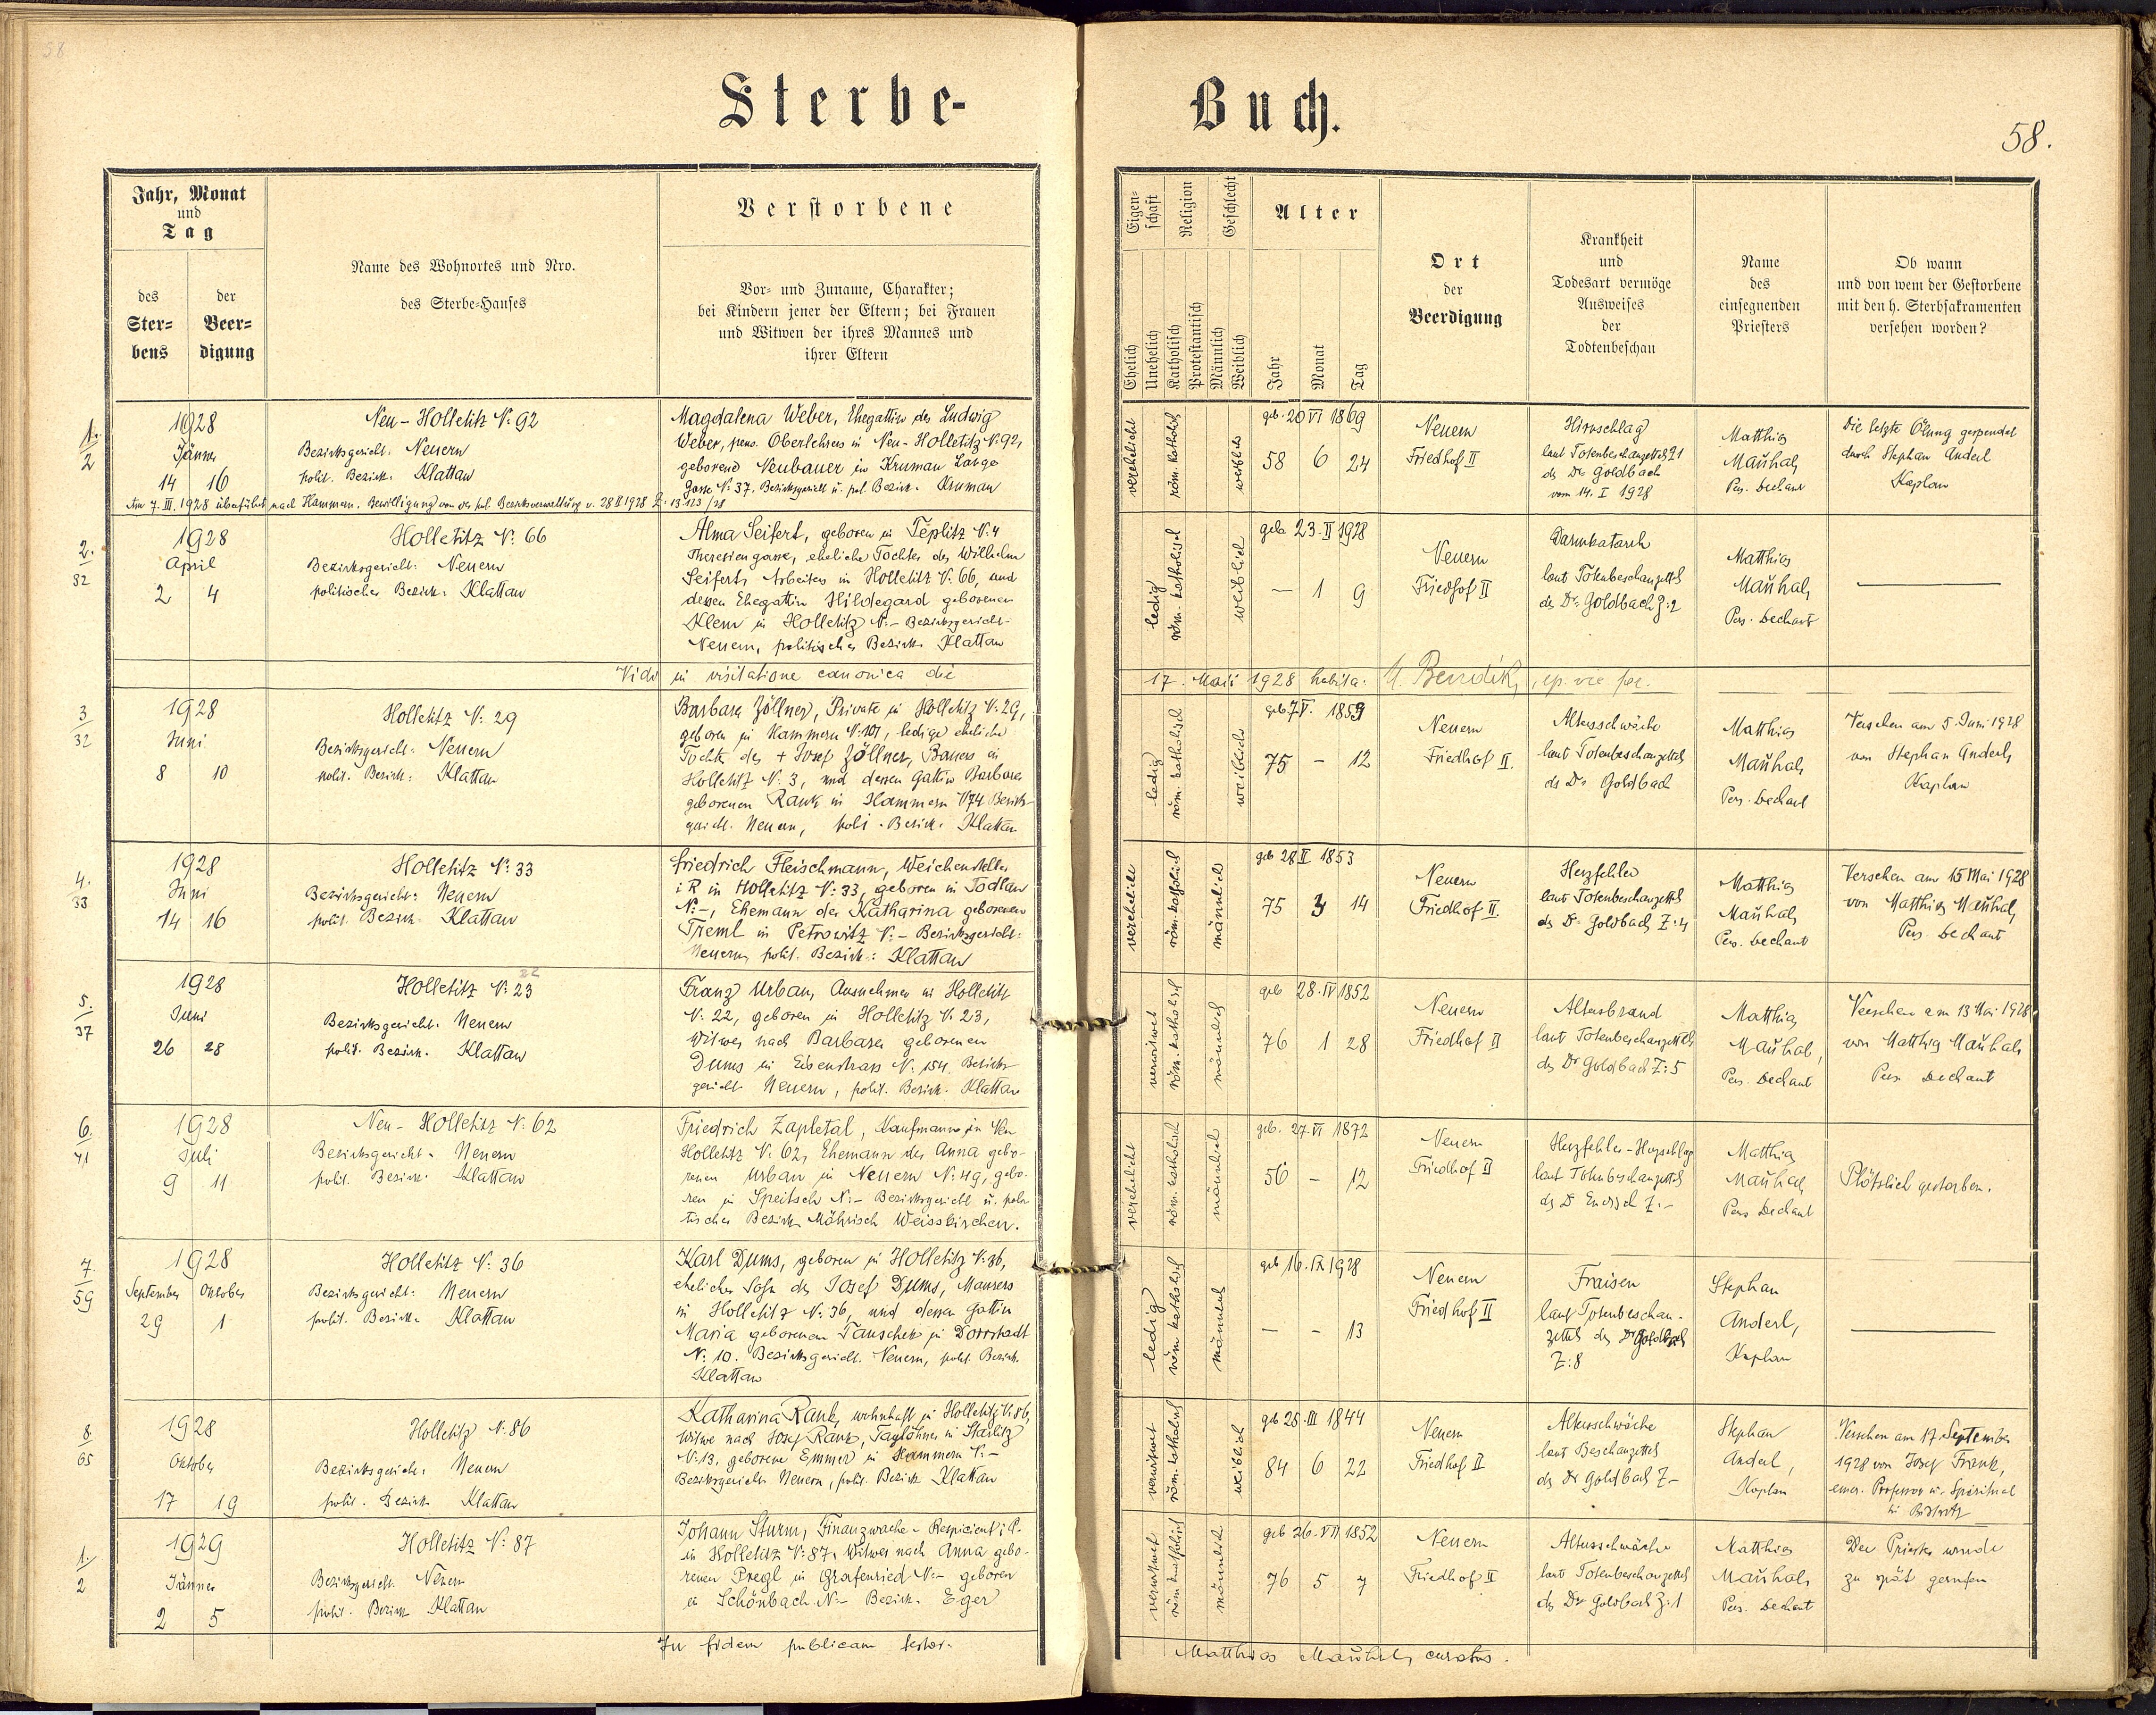 58
Sterbe-
Buch.
58.
Jahr, Monat
und
Tag
des
Ster=
bens
der
Beer=
digung
Name des Wohnortes und Nro.
des Sterbe=Hauses
Verstorbene
Vor= und Zuname, Charakter;
bei Kindern jener der Eltern; bei Frauen
und Witwen der ihres Mannes und
ihrer Eltern
Eigen=
schaft
Religion
Geschlecht
Ehelich
Unehelich
Katholisch
Protestantisch
Männlich
Weiblich
Alter
Jahr
Monat
Tag
Ort
der
Beerdigung
Krankheit
und
Todesart vermöge
Ausweises
der
Todtenbeschau
Name
des
einsegnenden
Priesters
Ob wann
und von wem der Gestorbene
mit den h. Sterbsakramenten
versehen worden?
1.
2
1928
Jänner
14 16
Neu-Holletitz N: 92
Bezirksgericht: Neuern
polit. Bezirk: Klattau
Magdalena Weber, Ehegattin des Ludwig
Weber, pens. Oberlehrers in Neu-Holletitz N: 92,
geborene Neubauer in Kruman Lange
Gasse N: 37. Bezirksgericht u. pol. Bezirk. Kruman
Am 7. III. 1928 überführt nach Hammern. Bewilligung von der pol. Bezirksverwaltung v. 28 II 1928 Z: 13.123/28
verehelicht
röm. katholisch
weiblich
geb. 20 VI 1869
58 6 24
Neuern
Friedhof II
Hirnschlag
laut Totenbeschauzettel 21
des Dr Goldbach
vom 14. I 1928
Matthias
Mauhal,
Pers. Dechant
Die letzte Ölung gespendet
durch Stephan Anderl
Kaplan
2.
32
1928
April
2 4
Holletitz N: 66
Bezirksgericht: Neuern
politischer Bezirk: Klattau
Alma Seifert, geboren in Teplitz N: 4
Theresiengasse, eheliche Tochter des Wilhelm
Seifert, Arbeiters in Holletitz N: 66, und
dessen Ehegattin Hildegard geborenen
Klem in Holletitz N: – Bezirksgericht
Neuern, politischer Bezirk Klattau
ledig
röm. katholisch
weiblich
geb. 23. II 1928
– 1 9
Neuern
Friedhof II
Darmkatarrh
laut Totenbeschauzettel
des Dr. Goldbach Z: 2
Matthias
Mauhal,
Pers. Dechant
Vidi in visitatione canonica die
17. Maii 1928 habita.
3
32
1928
Juni
8 10
Holletitz N: 29
Bezirksgericht: Neuern
polit. Bezirk: Klattau
Barbara Zöllner, Private in Holletitz N: 29,
geboren in Hammern N: 101, ledige eheliche
Tochter des + Josef Zöllner, Bauers in
Holletitz N: 3, und dessen Gattin Barbara
geborenen Rank in Hammern N 74 Bezirks-
gericht. Neuern, poli. Bezirk: Klattau
ledig
röm. katholisch
weiblich
geb 7 V. 1853
75 – 12
Neuern
Friedhof II.
Altersschwäche
laut Totenbeschauzettel
des Dr Goldbach
Matthias
Mauhal,
Pers. Dechant
Versehen am 5. Juni 1928
von Stephan Anderl,
Kaplan
4.
33
1928
Juni
14 16
Holletitz N: 33
Bezirksgericht: Neuern
polit. Bezirk: Klattau
Friedrich Fleischmann, Weichensteller
i R in Holletitz N: 33, geboren in Todlau
N: –, Ehemann der Katharina geborenen
Treml in Petrowitz N: – Bezirksgericht:
Neuern, polit. Bezirk: Klattau
verehelicht
röm. katholisch
männlich
geb 28 II 1853
75 3 14
Neuern
Friedhof II.
Herzfehler
laut Totenbeschauzettel
des Dr Goldbach Z: 4
Matthias
Mauhal,
Pers. Dechant
Versehen am 15 Mai 1928
von Matthias Mauhal,
Pers. Dechant
5.
37
1928
Juni
26 28
22
Holletitz N: 23
Bezirksgericht: Neuern
polit. Bezirk. Klattau
Franz Urban, Ausnehmer in Holletitz
N: 22, geboren in Holletitz N: 23,
Witwer nach Barbara geborenen
Dums in Eisenstrass N: 154 Bezirks-
gericht Neuern, polit. Bezirk. Klattau
verwitwet
röm. katholisch
männlich
geb 28. IV 1852
76 1 28
Neuern
Friedhof II
Altersbrand
laut Totenbeschauzettels
des Dr Goldbach Z: 5
Matthias
Mauhal,
Pers. Dechant
Versehen am 13 Mai 1928
von Matthias Mauhal
Pers Dechant
6.
41
1928
Juli
9 11
Neu-Holletitz N: 62
Bezirksgericht. Neuern
polit. Bezirk: Klattau
Friedrich Zapletal, Kaufmann in Neu
Holletitz N: 62, Ehemann der Anna gebo-
renen Urban in Neuern N: 49, gebo-
ren in Speitsch N: – Bezirksgericht u. poli-
tischer Bezirk Mährisch Weisskirchen.
verehelicht
röm. katholisch
männlich
geb. 27. VI 1872
56 – 12
Neuern
Friedhof II
Herzfehler-Herzschlag
laut Totenbeschauzettel
des Dr Z: –
Matthias
Mauhal
Pers Dechant
Plötzlich gestorben.
7.
59
1928
September Oktober
29 1
Holletitz N: 36
Bezirksgericht: Neuern
polit. Bezirk. Klattau
Karl Dums, geboren in Holletitz N: 36,
ehelicher Sohn des Josef Dums, Maurers
in Holletitz N: 36, und dessen Gattin
Maria geborenen Tauschek in Dorrstadt
N: 10. Bezirksgericht. Neuern, polit. Bezirk.
Klattau
ledig
röm. katholisch
männlich
geb 16. IX 1928
– – 13
Neuern
Friedhof II
Fraisen
laut Totenbeschau-
zettel des Dr Goldbach
Z: 8
Stephan
Anderl,
Kaplan
8
65
1928
Oktober
17 19
Holletitz N. 86
Bezirksgericht: Neuern
polit. Bezirk Klattau
Katharina Rank, wohnhaft in Holletitz N: 86,
Witwe nach Josef Rank, Taglöhner in Starlitz
N: 13, geborene Emmer in Hammern N: –
Bezirksgericht Neuern, polit. Bezirk Klattau
verwitwet
röm. katholisch
weiblich
geb 25. III 1844
84 6 22
Neuern
Friedhof II
Altersschwäche
laut Beschauzettel
des Dr Goldbach Z –
Stephan
Anderl,
Kaplan
Versehen am 17. September
1928 von Josef Frank,
emer. Professor u. Spiritual
in Bistritz
1/
2
1929
Jänner
2 5
Holletitz N: 87
Bezirksgericht. Neuern
polit. Bezirk Klattau
Johann Sturm, Finanzwache-Respicient i P.
in Holletitz N: 87. Witwer nach Anna gebo-
renen Pregl in Grafenried N: – geboren
in Schönbach N: – Bezirk. Eger
verwitwet
röm. katholisch
männlich
geb 26. VII 1852
76 5 7
Neuern
Friedhof II
Altersschwäche
laut Totenbeschauzettel
des Dr Goldbach Z: 1
Matthias
Mauhal,
Pers. Dechant
Der Priester wurde
zu spät gerufen
In fidem publicam testor.
Matthias Mauhal, curatus.